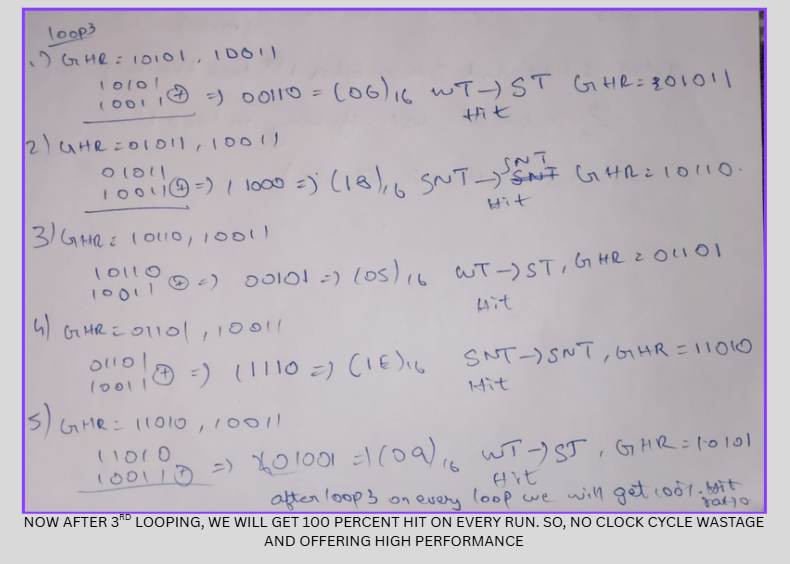 loop3
1) GHR = 10101, 10011
10101
10011 ⊕ => 00110 = (06)16 WT -> ST GHR = 01011
Hit
2) GHR = 01011, 10011
01011
10011 ⊕ => 11000 => (18)16 SNT -> SNT GHR = 10110.
Hit
3) GHR = 10110, 10011
10110
10011 ⊕ => 00101 => (05)16 WT -> ST, GHR = 01101
Hit
4) GHR = 01101, 10011
01101
10011 ⊕ => 11110 => (1E)16 SNT -> SNT, GHR = 11010
Hit
5) GHR = 11010, 10011
11010
10011 ⊕ => 01001 => (09)16 WT -> ST, GHR = 10101
Hit
after loop3 on every loop we will get 100% hit
ratio
NOW AFTER 3RD LOOPING, WE WILL GET 100 PERCENT HIT ON EVERY RUN. SO, NO CLOCK CYCLE WASTAGE
AND OFFERING HIGH PERFORMANCE